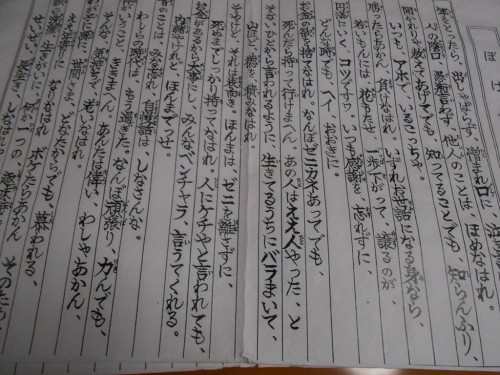 ぼけ
年をとったら、出しゃばらず、憎まれ口に
人の陰口、他人のことは、ほめなはれ。
聞かれりゃ、教えてあげてでも、知ってることでも、知らんふり、
いつも、アホでいるこっちゃ。
勝ったらあかん、負けなはれ、いずれお世話になる身なら、
若いもんには、花もたせ、一歩下がって、譲るのが
円満にいく、コツですわ。いつも感謝を、忘れずに、
どんな時でも、ヘイ、おおきに。
お金の欲を、捨てなはれ。なんぼゼニカネあってでも、
死んだら持って行けまへん。あの人はええ人やった、と
そないひとから、言われるように、生きてるうちにバラまいて、
山ほど、徳を、積みなはれ。
そやけど、それは表向き、ほんまは、ゼニを離さずに、
死ぬまでしっかり、持ってなはれ。人にケチやと言われても、
お金があるから大事にし、みんなベンチャラ、言うてくれる。
内緒やけれど、ほんまだっせ。
昔のことは、みな忘れ、自慢話は、しなはんな。
わしらの時代は、もう過ぎた。なんぼ頑張り、力んでも、
いうこと、ききまへん。あんたは偉い、わしゃあかん、
そんな気持ちで、老いなはれ。
どなたからでも、慕われる、
なはれ、ボケたらあかん、そのため
何か一つの
せいだい、長生き、しなはれ